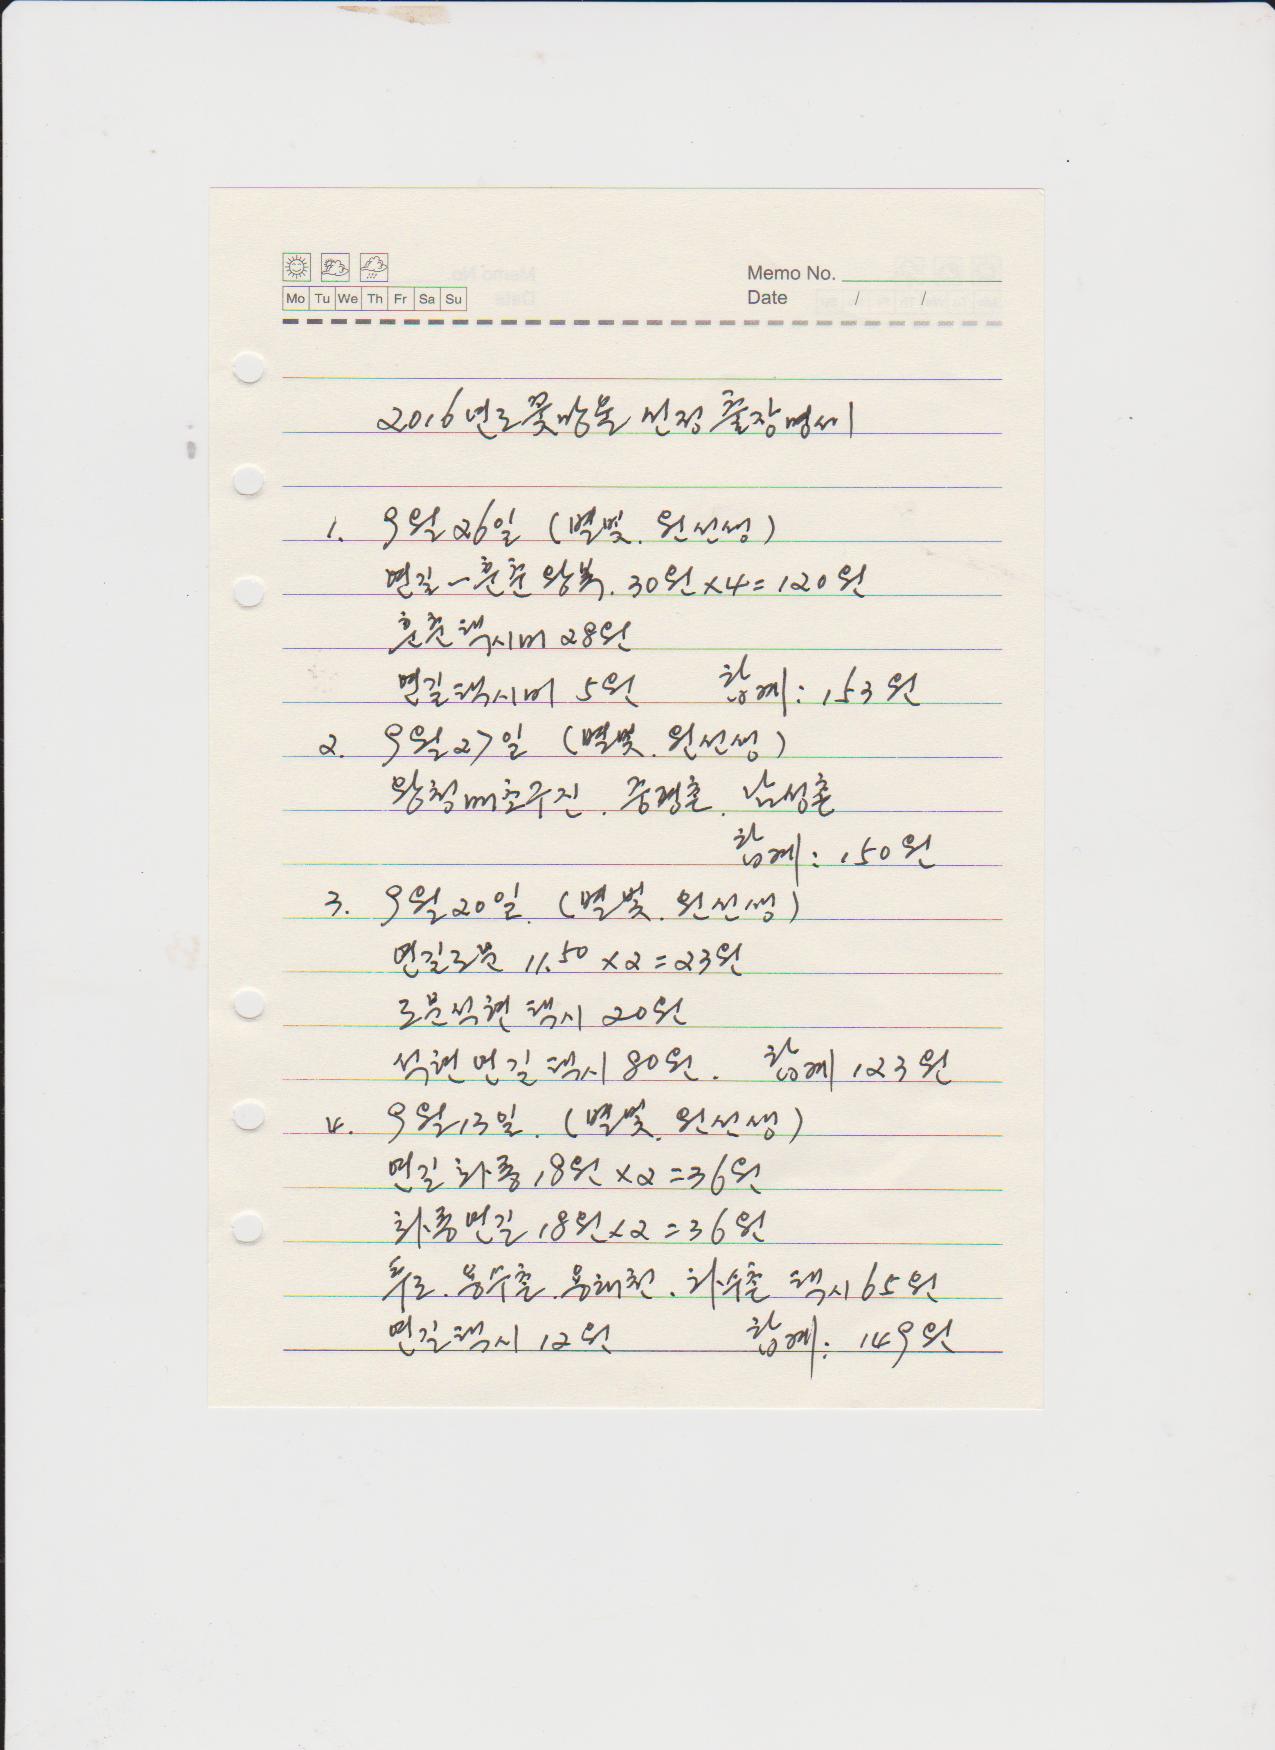 Memo No.
Mo Tu We Th Fr Sa Su
Date / /
2016년도꽃망울 선정 출장명세
1. 9월26일 (별빛. 원선생)
연길-훈춘 왕복. 30원×4=120원
훈춘택시비 28원
연길택시비 5원 합계: 153원
2. 9월27일 (별빛. 원선생)
왕청배초구진. 중평촌. 남성촌
합계: 150원
3. 9월20일. (별빛. 원선생)
연길도문 11.50×2=23원
도문석현 택시 20원
석현연길택시 80원. 합계 123원
4. 9월13일. (별빛. 원선생)
연길화룡 18원×2=36원
화룡연길 18원×2=36원
투도. 룡수촌. 택시65원
연길택시 12원 합계: 149원